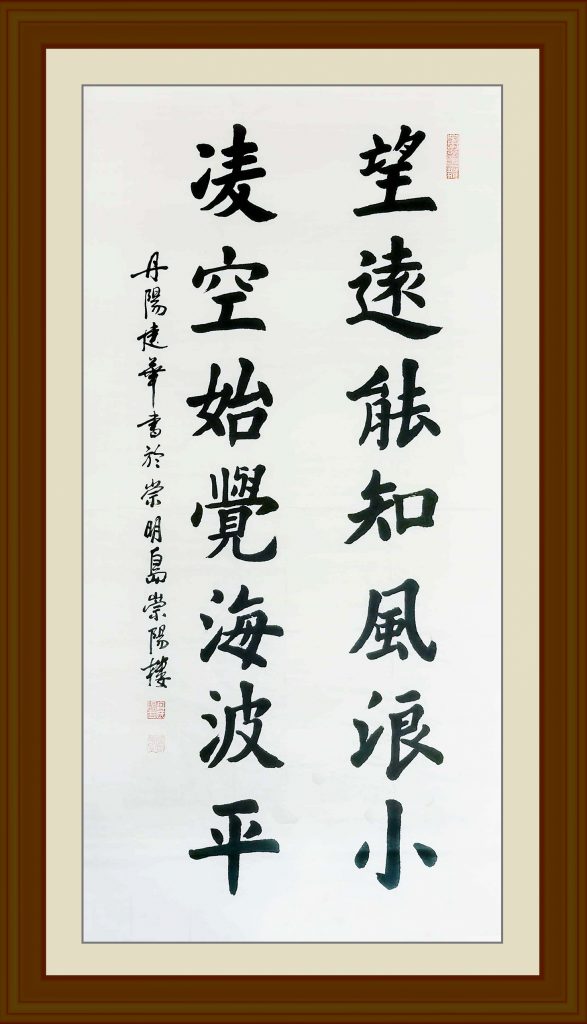 望遠能知風浪小
凌空始覺海波平
丹陽建華書於崇明島崇陽樓